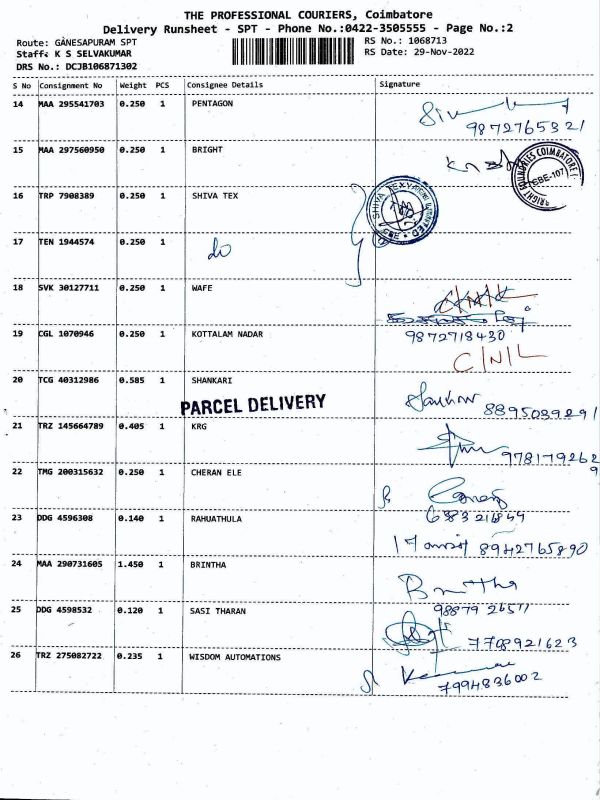 THE PROFESSIONAL COURIERS, Coimbatore
Delivery Runsheet - SPT - Phone No.:0422-3505555 - Page No.:2
Route: GANESAPURAM SPT RS No.: 1068713
Staff: K S SELVAKUMAR RS Date: 29-Nov-2022
DRS No.: DCJB106871302
S No Consignment No Weight PCS Consignee Details Signature
14 MAA 295541703 0.250 1 PENTAGON
9872765321
15 MAA 297560950 0.250 1 BRIGHT
BRIGHT FOUNDRIES COIMBATORE
CBE-107
16 TRP 7908389 0.250 1 SHIVA TEX
SHIVA TEXYARN LIMITED
CBE
17 TEN 1944574 0.250 1
do
18 SVK 30127711 0.250 1 WAFE
19 CGL 1070946 0.250 1 KOTTALAM NADAR 9872718430
C/N/L
20 TCG 40312986 0.585 1 SHANKARI
PARCEL DELIVERY
8895039291
21 TRZ 145664789 0.405 1 KRG
9781792629
22 TMG 200315632 0.250 1 CHERAN ELE
23 DDG 4596308 0.140 1 RAHUATHULA
8942765890
24 MAA 290731605 1.450 1 BRINTHA
Brintha
25 DDG 4598532 0.120 1 SASI THARAN
7708921623
26 TRZ 275082722 0.235 1 WISDOM AUTOMATIONS
7994836002